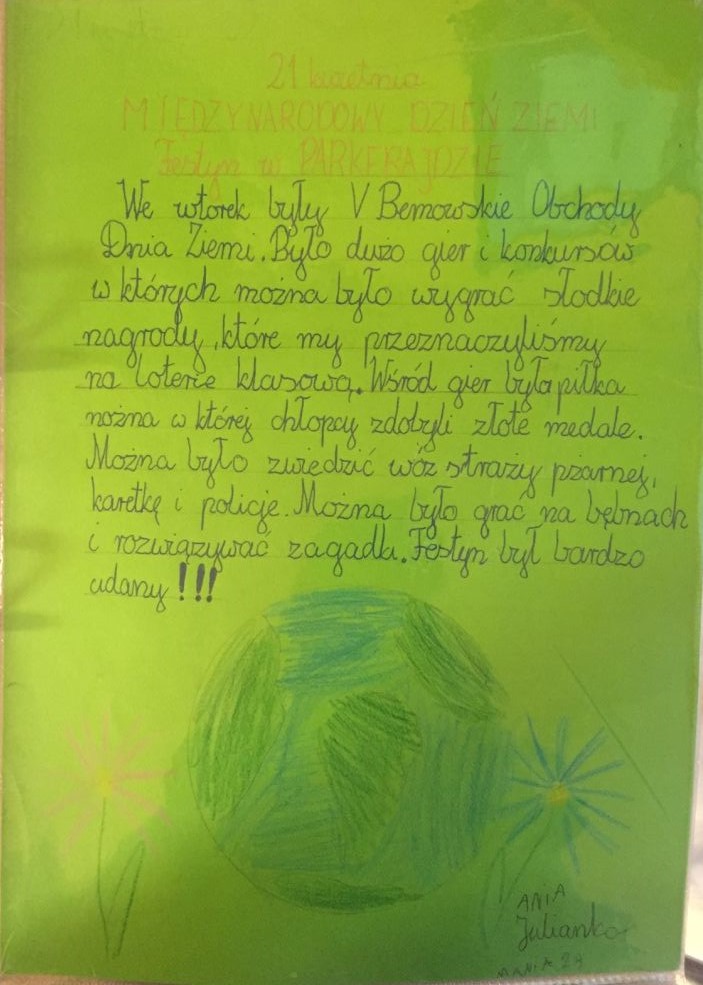 21 kwietnia
MIĘDZYNARODOWY DZIEŃ ZIEMI
Festyn w PARKERAJDZIE
We wtorek były V Bemowskie Obchody
Dnia Ziemi. Było dużo gier i konkursów
w których można było wygrać słodkie
nagrody, które my przeznaczyliśmy
na loterie klasową. Wśród gier była piłka
nożna w której chłopcy zdobyli złote medale.
Można było zwiedzić wóz straży pżarnej,
karetkę i policje. Można było grać na bębnach
i rozwiązywać zagadki. Festyn był bardzo
udany!!!
ANIA
Julianka